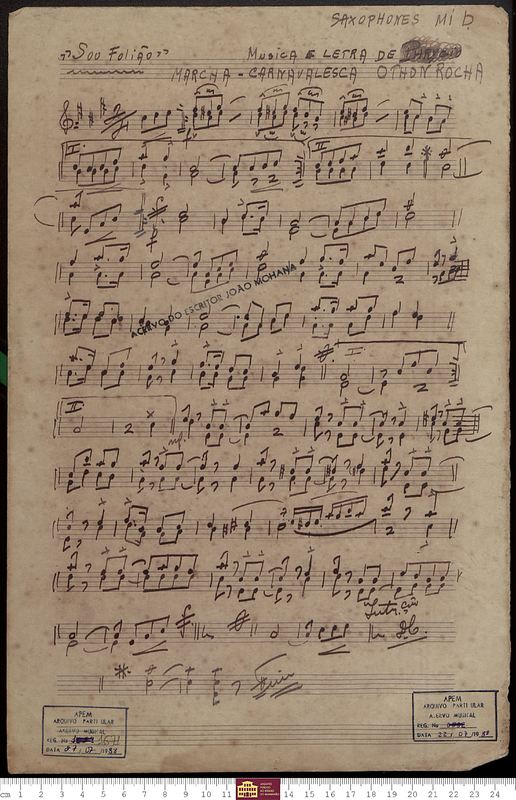 SAXOPHONES MI b
"Sou Folião" MUSICA E LETRA DE
MARCHA - CARNAVALESCA OTHON ROCHA
I.
II
ACERVO DO ESCRITOR JOÃO MOHANA
I
II
mf
Fim
APEM
ARQUIVO PARTICULAR
ACERVO MUSICAL
REG. No
DATA 07, 07 /1988
APEM
ARQUIVO PARTICULAR
ACERVO MUSICAL
REG. No
DATA 22, 07 /1988
cm 1 2 3 4 5 6 7 8 9 10 11 12 13 14 15 16 17 18 19 20 21 22 23 24